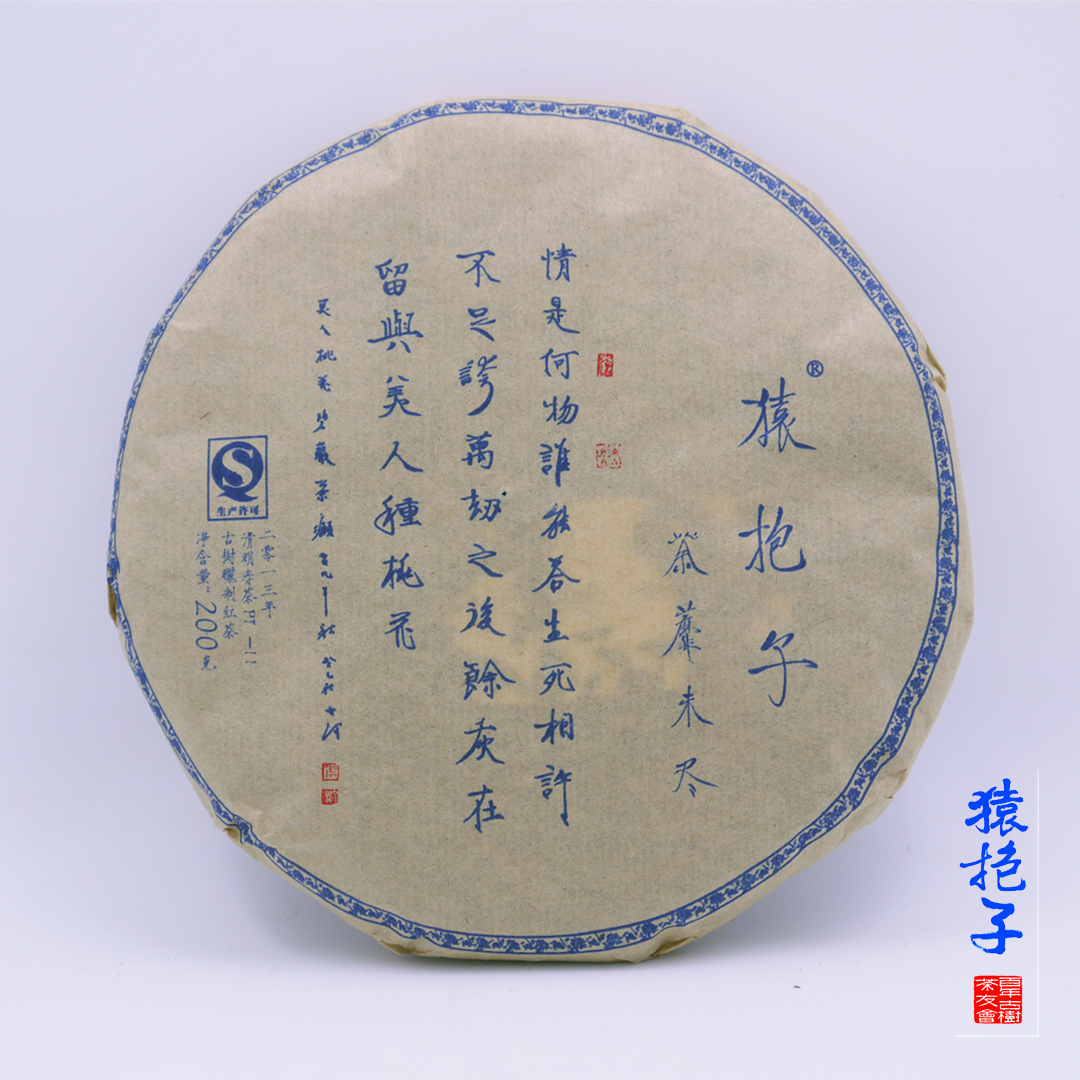 猿抱子
®
荼蘼未尽
情是何物誰能答生死相許
不足誇萬劫之後餘灰在
留與美人種桃花
生产许可
二零一三年
清明春茶
古樹曬制紅茶
净含量：200克
猿抱子
百年古樹
茶友會